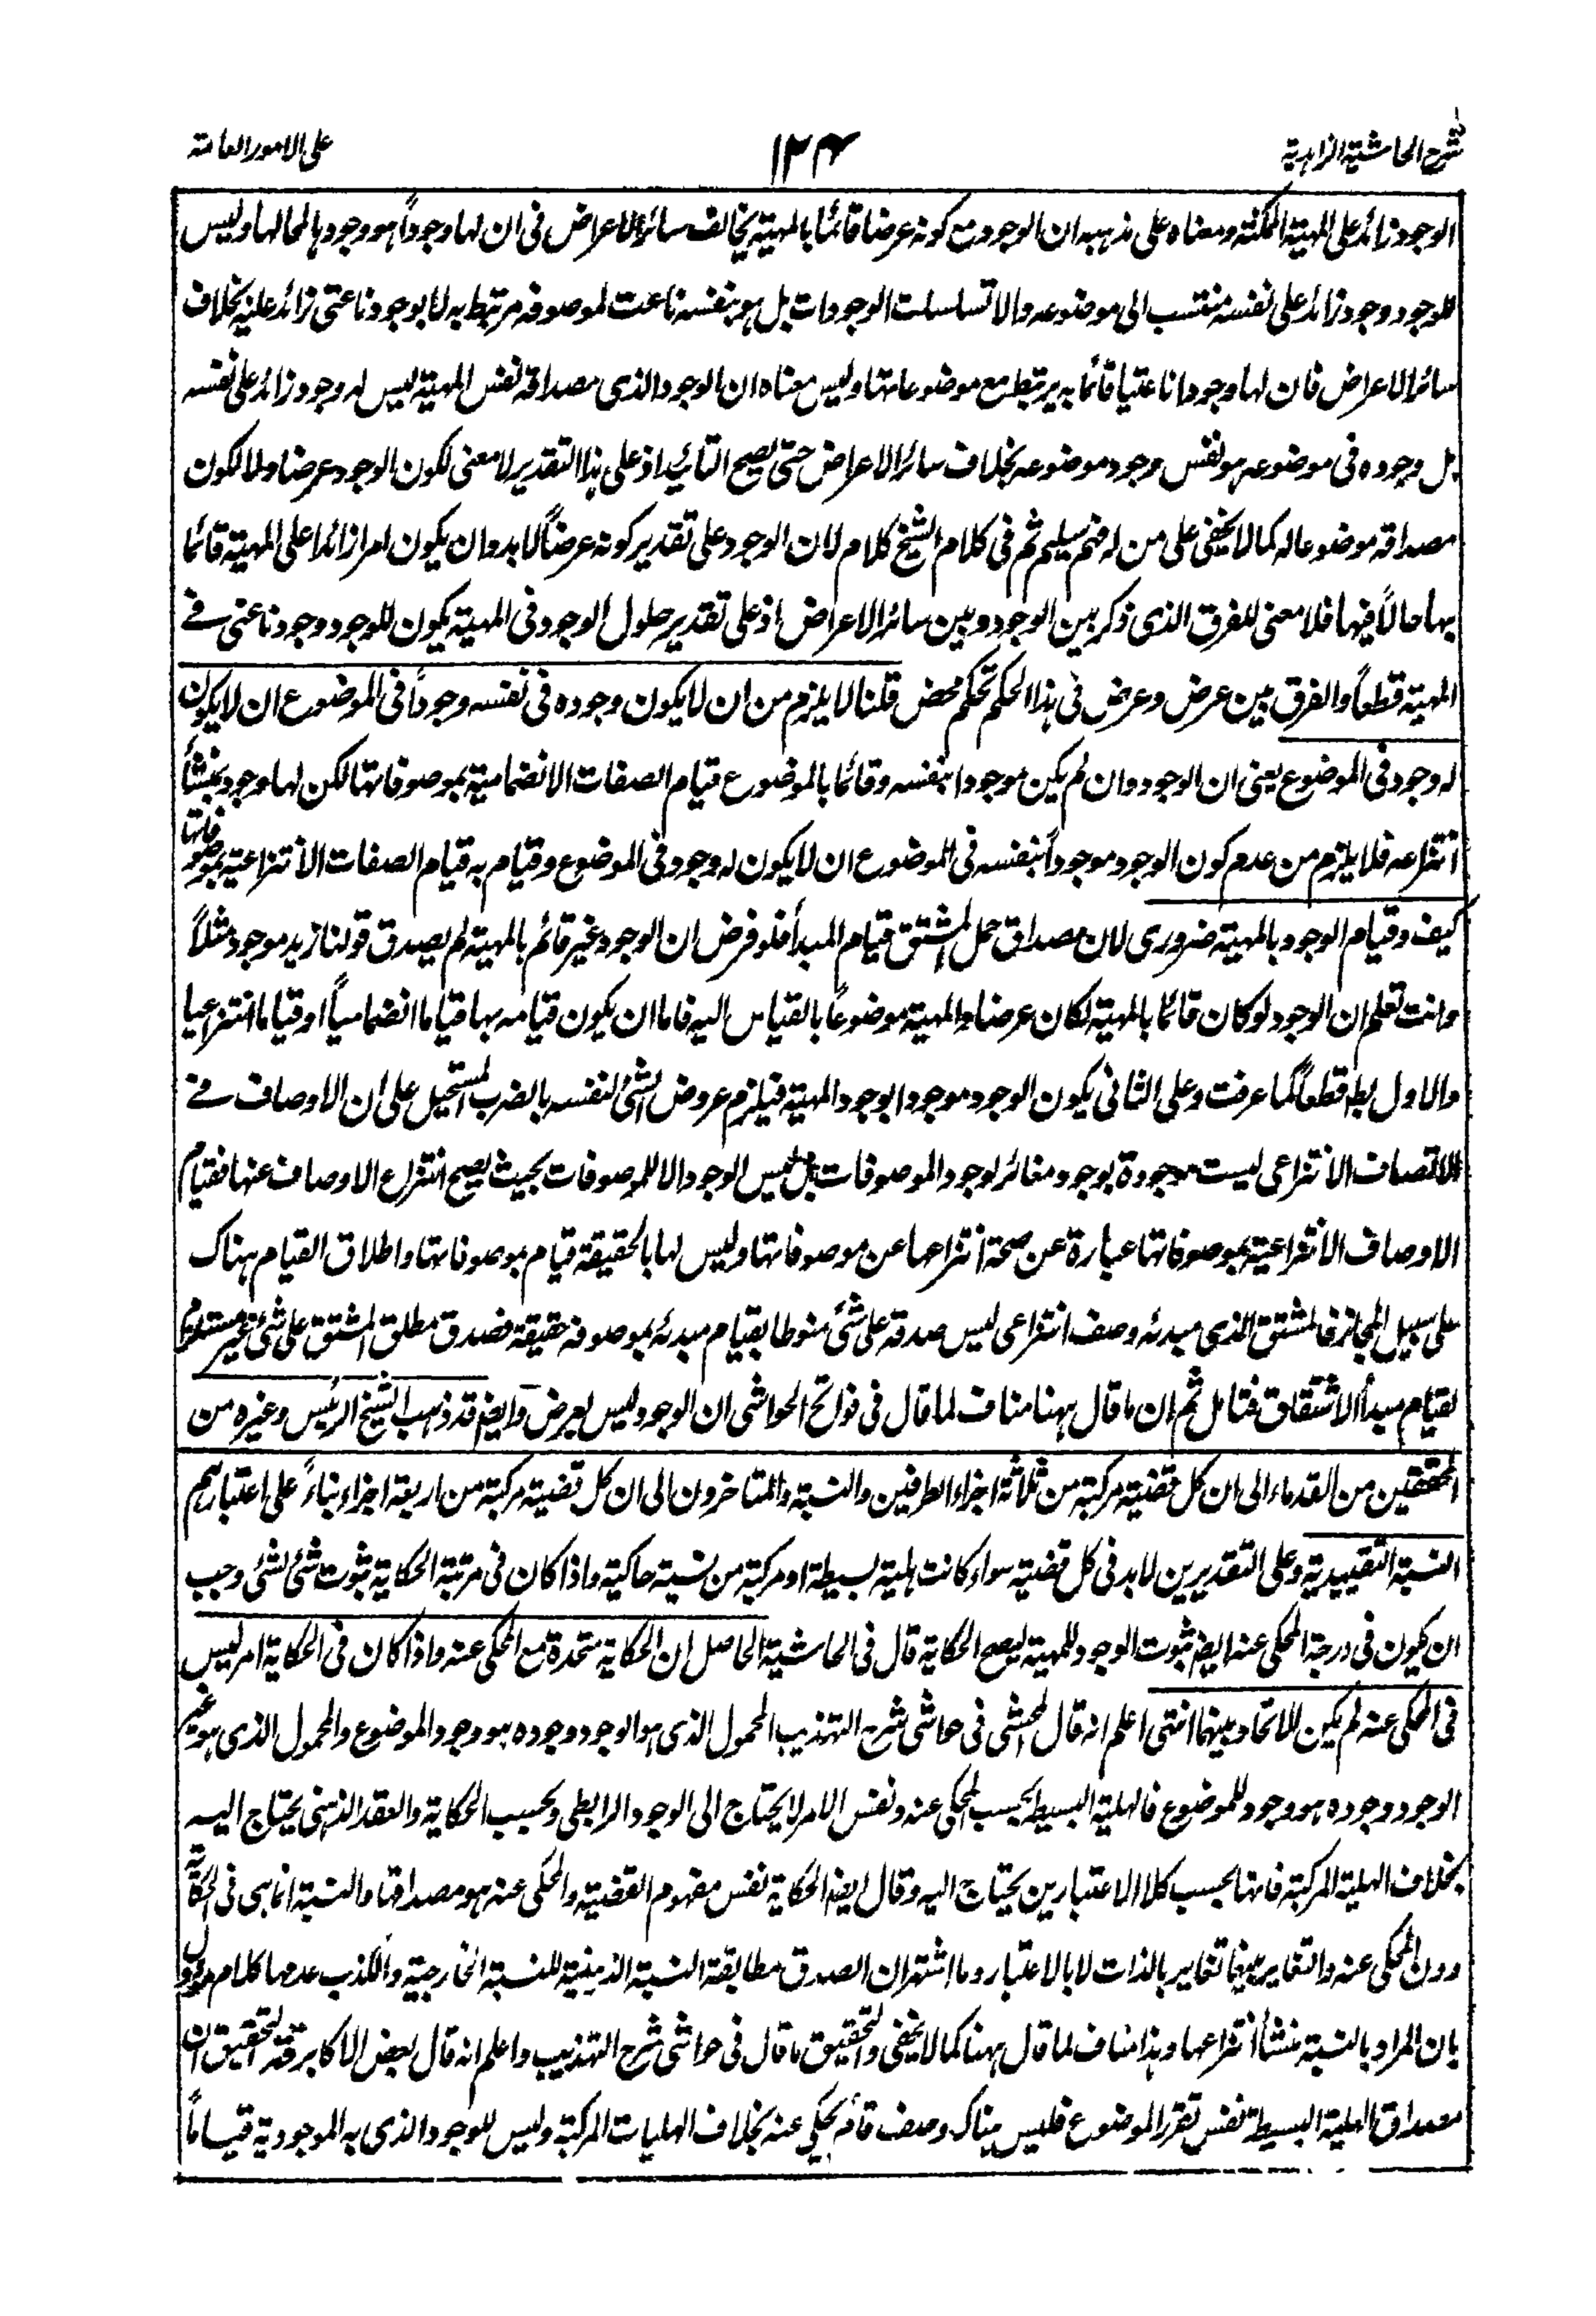 شرح الحاشية الزاهدية
١٣٤
على الامور العامة
الوجود زائد على المهية الممكنة ومعناه على مذهبه ان الوجود مع كونه عرضا قائما بالمهية يخالف سائر الاعراض فى ان لها وجوداً هو وجودها لمحالها وليس
للوجود وجود زائد على نفسه منتسب الى موضوعه والا تسلسلت الوجودات بل هو بنفسه ناعت لموصوفه مرتبط به لا بوجود ناعتى زائد عليه بخلاف
سائر الاعراض فان لها وجودا ناعتيا قائما به يرتبط مع موضوعاتها وليس معناه ان الوجود الذى مصداقه نفس المهية ليس له وجود زائد على نفسه
بل وجوده فى موضوعه هو نفس وجود موضوعه بخلاف سائر الاعراض حتى يصح التائيد اذ على هذا التقدير لا معنى لكون الوجود عرضا ولا لكون
مصداقه موضوعا له كما لا يخفى على من له فهم سليم ثم فى كلام الشيخ كلام لان الوجود على تقدير كونه عرضاً لا بد وان يكون امرا زائدا على المهية قائما
بها حالاً فيها فلا معنى للفرق الذى ذكر بين الوجود وبين سائر الاعراض اذ على تقدير حلول الوجود فى المهية يكون للوجود وجود ناعتى فى
المهية قطعاً والفرق بين عرض وعرض فى هذا الحكم تحكم محض قلنا لا يلزم من ان لا يكون وجوده فى نفسه وجوداً فى الموضوع ان لا يكون
له وجود فى الموضوع يعنى ان الوجود وان لم يكن موجودا بنفسه وقائما بالموضوع قيام الصفات الانضمامية بموصوفاتها لكن لها وجود بمنشأ
انتزاعه فلا يلزم من عدم كون الوجود موجوداً بنفسه فى الموضوع ان لا يكون له وجود فى الموضوع وقيام به قيام الصفات الانتزاعية بموصوفاتها
كيف وقيام الوجود بالمهية ضرورى لان مصداق حمل المشتق قيام المبدأ فلو فرض ان الوجود غير قائم بالمهية لم يصدق قولنا زيد موجود مثلاً
وانت تعلم ان الوجود لو كان قائما بالمهية لكان عرضا والمهية موضوعاً بالقياس اليه فاما ان يكون قيامه بها قياما انضمامياً او قياما انتزاعيا
والاول بط قطعاً كما عرفت وعلى الثانى يكون الوجود موجودا بوجود المهية فيلزم عروض الشئ لنفسه بالضرب المستحيل على ان الاوصاف فى
الاتصاف الانتزاعى ليست موجودة بوجود مغائر لوجود الموصوفات بل ليس الوجود الا للموصوفات بحيث يصح انتزاع الاوصاف عنها فقيام
الاوصاف الانتزاعية بموصوفاتها عبارة عن صحة انتزاعها عن موصوفاتها وليس لها بالحقيقة قيام بموصوفاتها واطلاق القيام هناك
على سبيل المجاز فالمشتق الذى مبدئه وصف انتزاعى ليس صدقه على شئ منوطا بقيام مبدئه بموصوفه حقيقة فصدق مطلق المشتق على شئ غير مستلزم
لقيام مبدأ الاشتقاق فتامل ثم ان ما قال ههنا مناف لما قال فى فواتح الحواشى ان الوجود ليس بعرض وايض قد ذهب الشيخ الرئيس وغيره من
المحققين من القدماء الى ان كل قضية مركبة من ثلاثة اجزاء الطرفين والنسبة والمتاخرون الى ان كل قضية مركبة من اربعة اجزاء بناءً على اعتبارهم
النسبة التقييدية وعلى التقديرين لا بد فى كل قضية سواء كانت هلية بسيطة او مركبة من نسبة حاكية واذا كان فى مرتبة الحكاية ثبوت شئ لشئ وجب
ان يكون فى درجة المحكى عنه ايض ثبوت الوجود للمهية ليصح الحكاية قال فى الحاشية الحاصل ان الحكاية متحدة مع المحكى عنه واذا كان فى الحكاية امر ليس
فى المحكى عنه لم يكن للاتحاد بينهما انتهى اعلم انه قال المحشى فى حاشى شرح التهذيب المحمول الذى هو الوجود وجوده هو وجود الموضوع والمحمول الذى هو غير
الوجود وجوده هو وجود للموضوع فالهلية البسيطة بحسب المحكى عنه ونفس الامر لا يحتاج الى الوجود الرابطى وبحسب الحكاية والعقد الذهنى يحتاج اليه
بخلاف الهلية المركبة فانها بحسب كلا الاعتبارين يحتاج اليه وقال ايض الحكاية نفس مفهوم القضية والمحكى عنه هو مصداقها والنسبة انما هى فى الحكاية
دون المحكى عنه والتغاير بينهما تغاير بالذات لا بالاعتبار وما اشتهر ان الصدق مطابقة النسبة الذهنية للنسبة الخارجية والكذب عدمها كلام مؤول
بان المراد بالنسبة منشأ انتزاعها وهذا مناف لما قال ههنا كما لا يخفى والتحقيق ما قال فى حواشى شرح التهذيب واعلم انه قال بعض الاكابر قده التحقيق ان
مصداق الهلية البسيطة نفس تقرر الموضوع فليس هناك وصف قائم يحكى عنه بخلاف الهليات المركبة وليس للوجود الذى به الموجودية قياماً